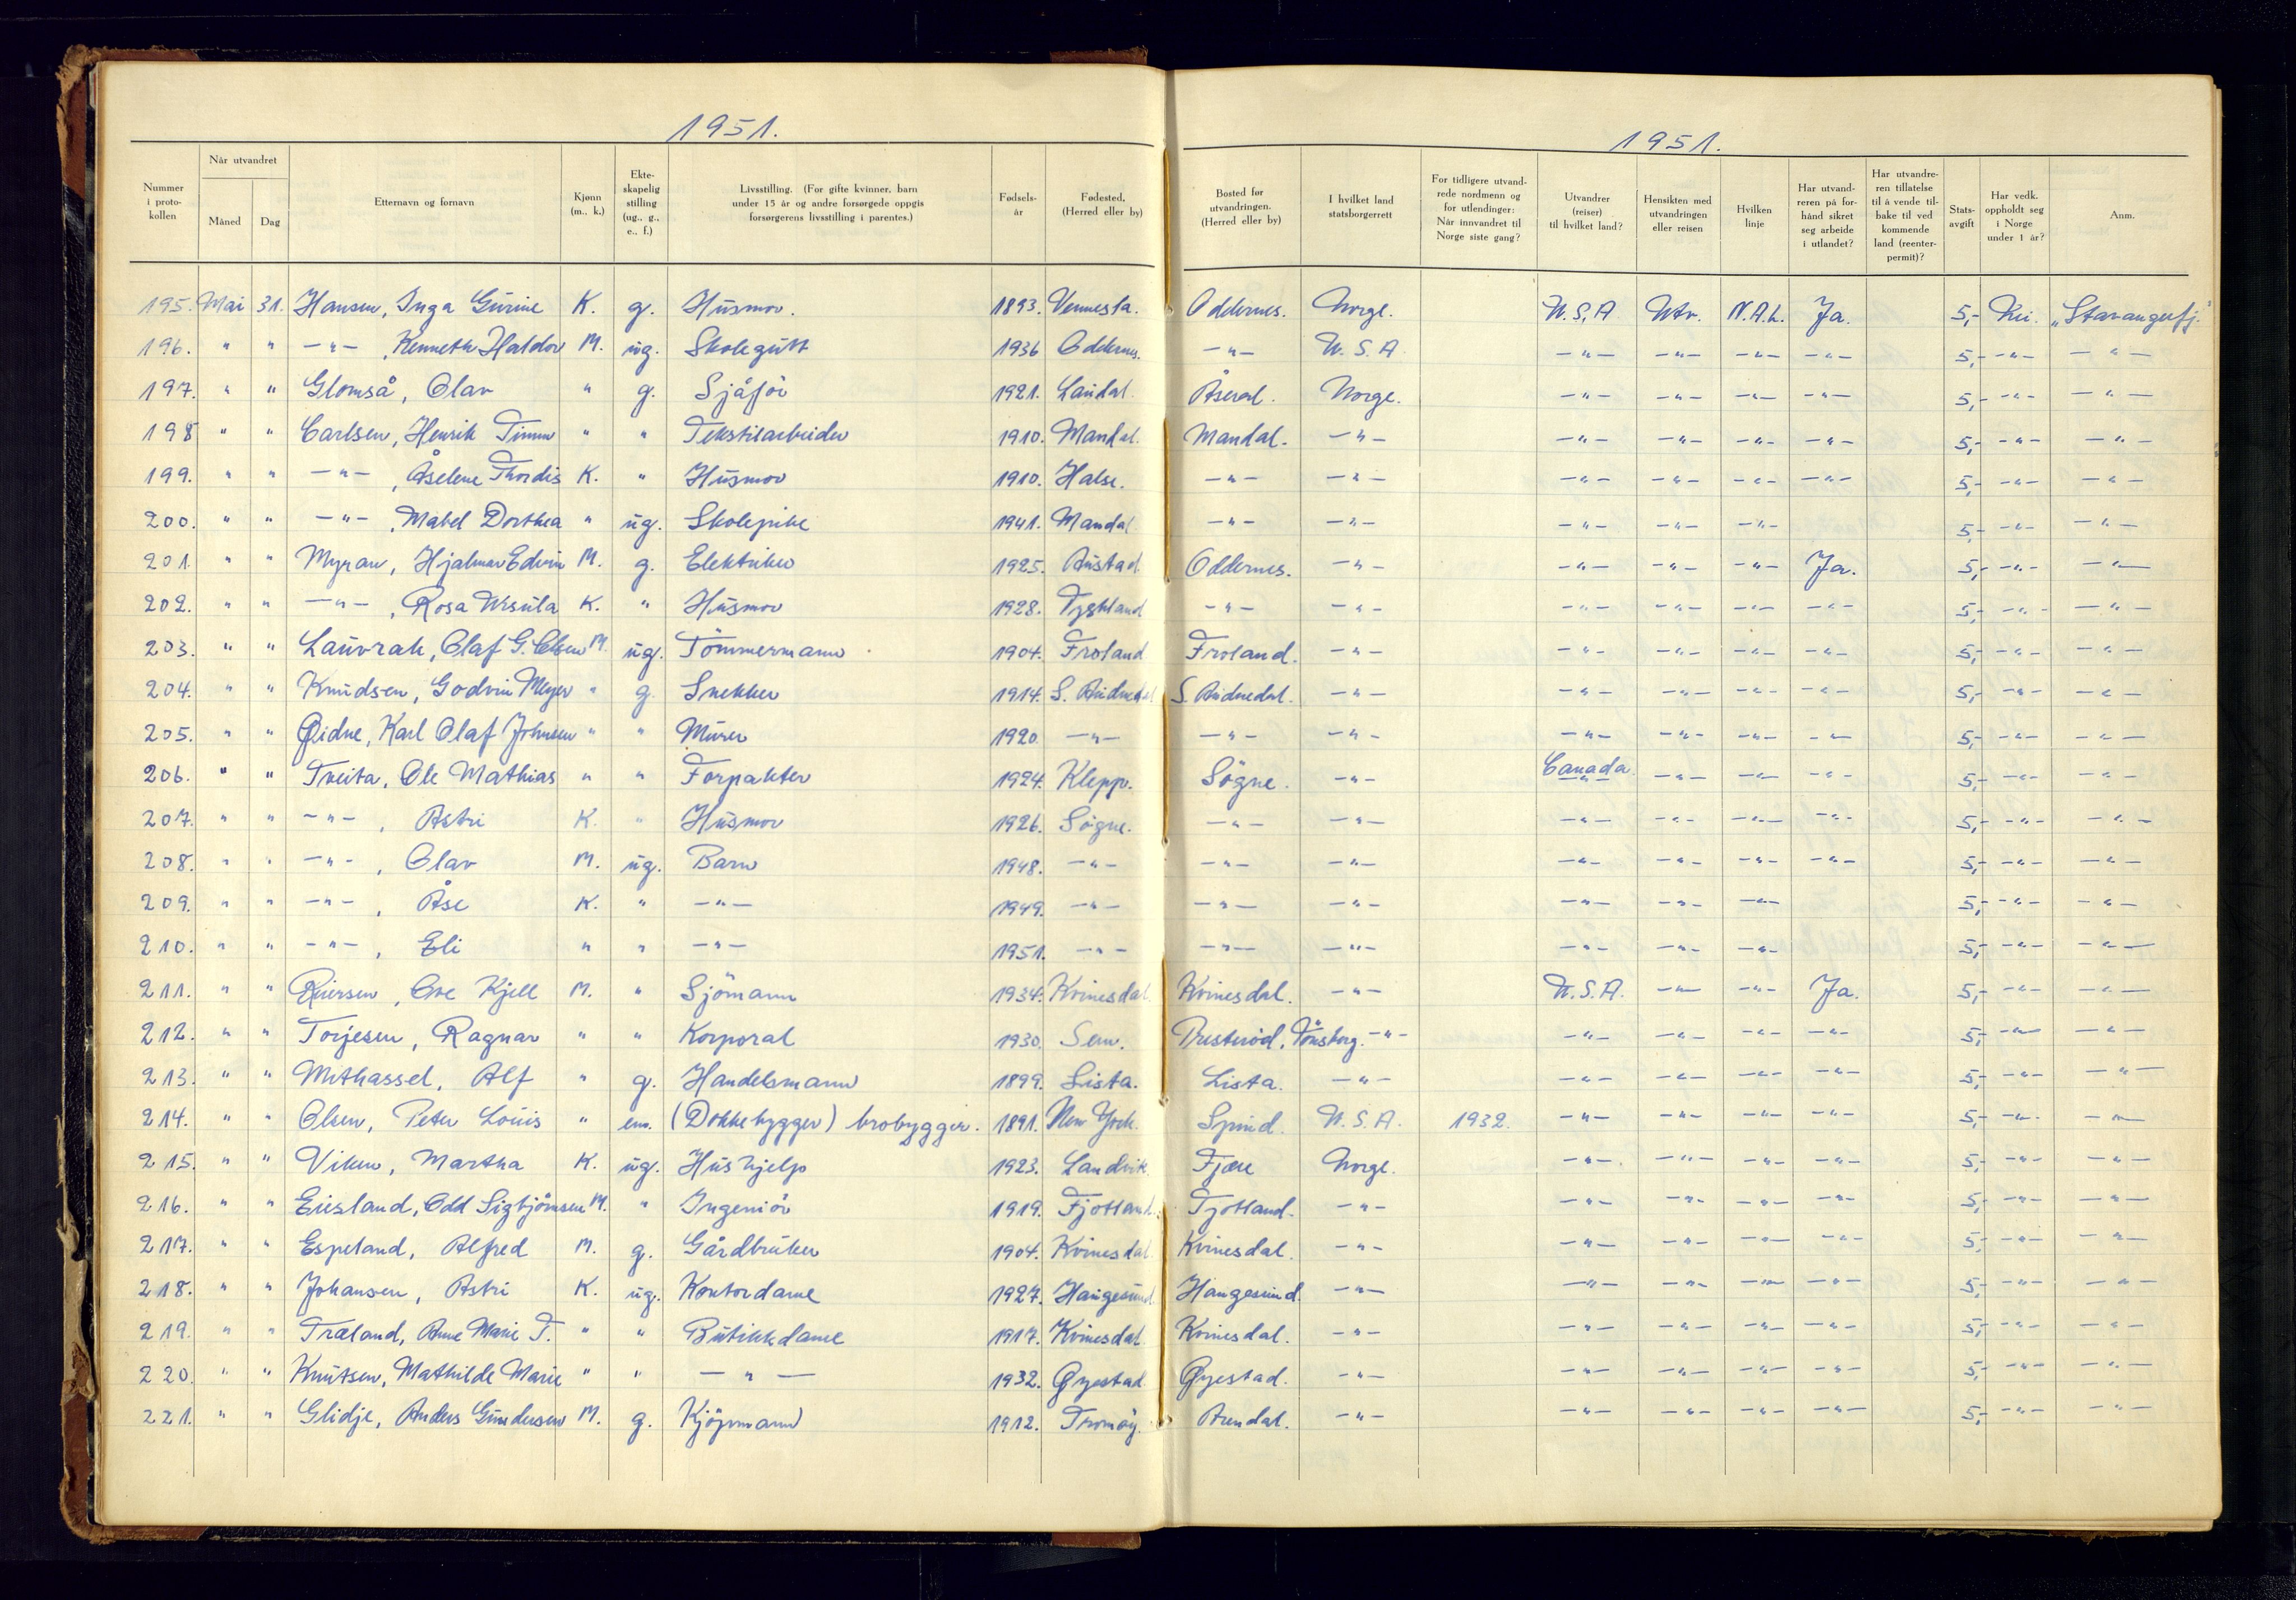 1951.
1951.
Nummer i proto-kollen | Når utvandret | Måned | Dag | Etternavn og fornavn | Kjønn (m., k.) | Ekte-skapelig stilling (ug., g., e., f.) | Livsstilling. (For gifte kvinner, barn under 15 år og andre forsørgede oppgis forsørgerens livsstilling i parentes.) | Fødsels-år | Fødested, (Herred eller by) | Bosted før utvandringen. (Herred eller by) | I hvilket land statsborgerrett | For tidligere utvand-rede nordmenn og for utlendinger: Når innvandret til Norge siste gang? | Utvandrer (reiser) til hvilket land? | Hensikten med utvandringen eller reisen | Hvilken linje | Har utvand-reren på for-hånd sikret seg arbeide i utlandet? | Har utvandre-ren tillatelse til å vende til-bake til ved kommende land (reenter-permit)? | Stats-avgift | Har vedk. oppholdt seg i Norge under 1 år? | Anm.
195. Mai 31. Hansen, Inga Gurine K. g. Husmor. 1893. Vennesla. Oddernes. Norge. U.S.A Utv. N.A.L. Ja. 5,- Nei. "Stavangerfj."
196. " " -"- , Kenneth Haldor M. ug. Skolegutt 1936 Oddernes. -"- U.S.A. -"- -"- -"- -"- 5,- -"- -"-
197. " " Glomså, Olav " g. Sjåför 1921. Laudal. Åseral. Norge. -"- -"- -"- -"- 5,- -"- -"-
198 " " Carlsen, Henrik Timm " " Tekstilarbeider 1910. Mandal. Mandal. -"- -"- -"- -"- -"- 5,- -"- -"-
199. " " -"- , Åselene Thordis K. " Husmor 1910. Halse. -"- -"- -"- -"- -"- -"- 5,- -"- -"-
200. " " -"- , Mabel Dorthea " ug. Skolepike 1941. Mandal -"- -"- -"- -"- -"- 5,- -"- -"-
201. " " Myran, Hjalmar Edvin M. g. Elektriker 1925. Austad Oddernes. -"- -"- -"- -"- Ja. 5,- -"- -"-
202. " " -"- , Rosa Ursula K. " Husmor 1928. Tyskland -"- -"- -"- -"- -"- -"- 5,- -"- -"-
203. " " Lauvrak, Olaf G. Olsen M. ug. Tömmermann 1904. Froland Froland. -"- -"- -"- -"- -"- 5,- -"- -"-
204. " " Knudsen, Godvin Meyer " g. Snekker 1914. S. Audnedal S. Audnedal. -"- -"- -"- -"- -"- 5,- -"- -"-
205. " " Öidne, Karl Olaf Johnsen " " Murer 1920 -"- -"- -"- -"- -"- -"- -"- 5,- -"- -"-
206. " " Tveita, Ole Mathias " " Forpakter 1924. Klepp. Sögne. -"- Canada -"- -"- -"- 5,- -"- -"-
207. " " -"- , Astri K. " Husmor 1926. Sögne. -"- -"- -"- -"- -"- -"- 5,- -"- -"-
208. " " -"- , Olav M. ug. Barn 1948. -"- -"- -"- -"- -"- -"- -"- 5,- -"- -"-
209. " " -"- , Åse K. " -"- 1949. -"- -"- -"- -"- -"- -"- 5,- -"- -"-
210. " " -"- , Eli " " -"- 1951. -"- -"- -"- -"- -"- -"- 5,- -"- -"-
211. " " Reiersen, Ove Kjell M. " Sjömann 1934. Kvinesdal. Kvinesdal. -"- U.S.A. -"- -"- Ja. 5,- -"- -"-
212. " " Torjesen, Ragnar " " Korporal 1930. Sem. Presteröd, Tönsberg. -"- -"- -"- -"- -"- 5,- -"- -"-
213. " " Mithassel, Alf " g. Handelsmann 1899. Lista. Lista. -"- -"- -"- -"- -"- 5,- -"- -"-
214. " " Olsen, Peter Louis " em. (Dokkebygger) brobygger. 1891. New York. Spind. U.S.A. 1932. -"- -"- -"- -"- 5,- -"- -"-
215. " " Viken, Martha K. ug. Hushjelp 1923. Landvik Fjære Norge. -"- -"- -"- -"- 5,- -"- -"-
216. " " Eiesland, Odd Sigbjörnsen M. " Ingeniör 1919. Fjotland. Fjotland. -"- -"- -"- -"- -"- 5,- -"- -"-
217. " " Espeland, Alfred M. g. Gårdbruker 1904. Kvinesdal Kvinesdal. -"- -"- -"- -"- -"- 5,- -"- -"-
218. " " Johansen, Astri K. ug. Kontordame 1927. Haugesund Haugesund. -"- -"- -"- -"- -"- 5,- -"- -"-
219. " " Træland, Anne Marie T. " " Butikkdame 1917. Kvinesdal Kvinesdal. -"- -"- -"- -"- -"- 5,- -"- -"-
220. " " Knutsen, Mathilde Marie " " -"- 1932. Öyestad Öyestad. -"- -"- -"- -"- -"- 5,- -"- -"-
221. " " Glidje, Anders Gundersen M. g. Kjöpmann 1912. Tromöy. Arendal. -"- -"- -"- -"- -"- 5,- -"- -"-